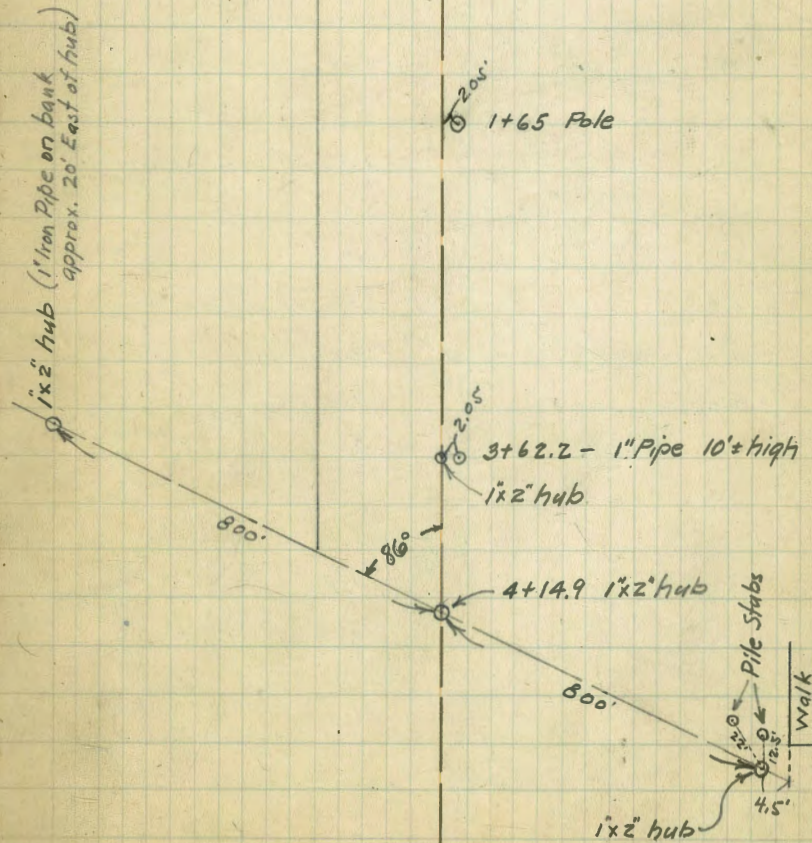 1"x2" hub (1" Iron Pipe on bank
approx. 20' East of hub)
2.05'
1+65 Pole
2.05'
3+62.2 - 1" Pipe 10'± high
1"x2" hub
800'
86°
4+14.9 1"x2" hub
800'
Pile Stubs
Walk
22'
12.5'
4.5'
1"x2" hub